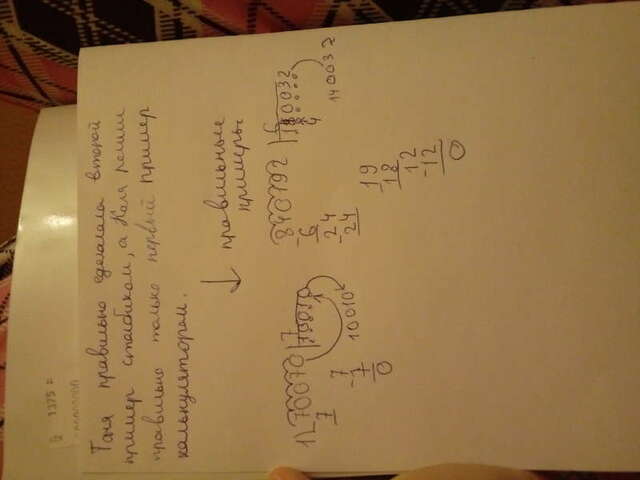 1375 =
Таня правильно сделала второй
пример столбиком, а Коля решил
правильно только первый пример
калькулятором.
↓ правильные
примеры
1) 70070 | 7
7
10010
-7
7
0
840192 | 6
-6
-24
24
140032
19
18
-12
12
0